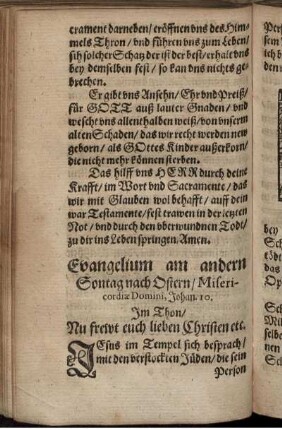 crament darneben / eröffnen vns des Him-
mels Thron / vnd führen vns zum Leben /
sih solcher Schatz der ist der best / erhalt vns
bey demselben fest / so kan vns nichts ge-
brechen.
Er gibt vns Ansehn / Ehr vnd Preiß /
für GOTT auß lauter Gnaden / vnd
wescht vns allenthalben weiß / von vnserm
alten Schaden / das wir recht werden new
geborn / als GOttes Kinder außerkorn /
die nicht mehr können sterben.
Das hilff vns HERR durch deine
Krafft / im Wort vnd Sacramente / das
wir mit Glauben wol behafft / auff dein
war Testamente / fest trawen in der letzten
Not / vnd durch den vberwundnen Todt /
zu dir ins Leben springen / Amen.
Evangelium am andern
Sontag nach Ostern / Miseri-
cordiæ Domini, Johan. 10.
Im Thon /
Nu frewt euch lieben Christen etc.
JEsus im Tempel sich besprach /
mit den verstockten Jüden / die sein
Person